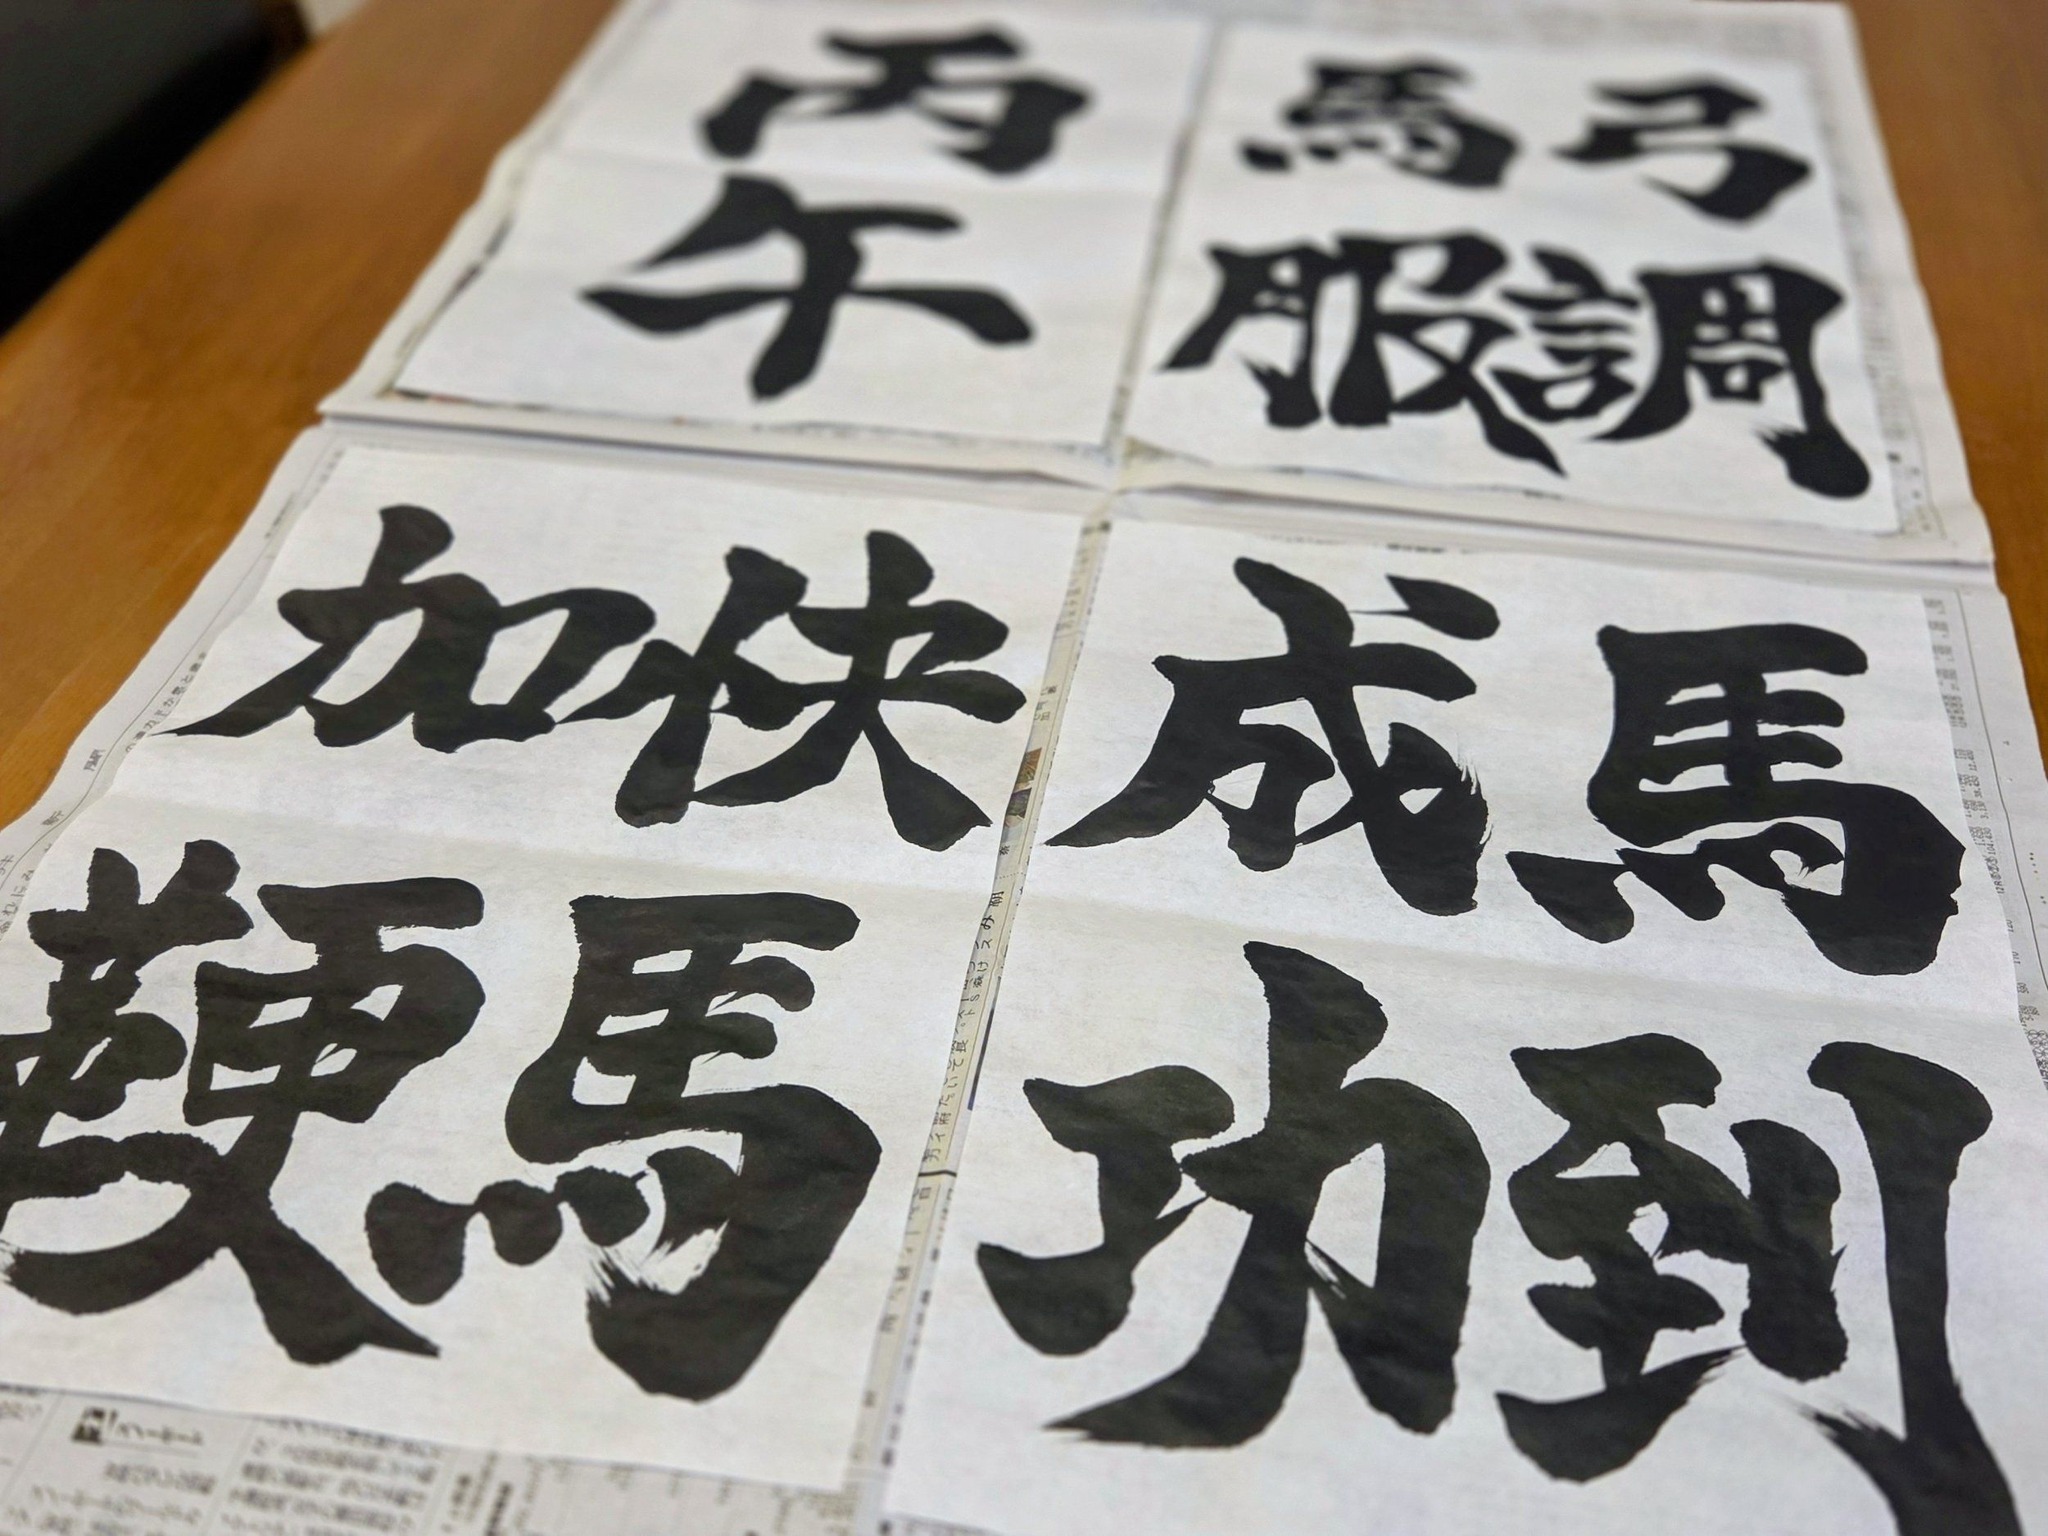 弓調
馬服
丙午
馬到
成功
快馬
加鞭